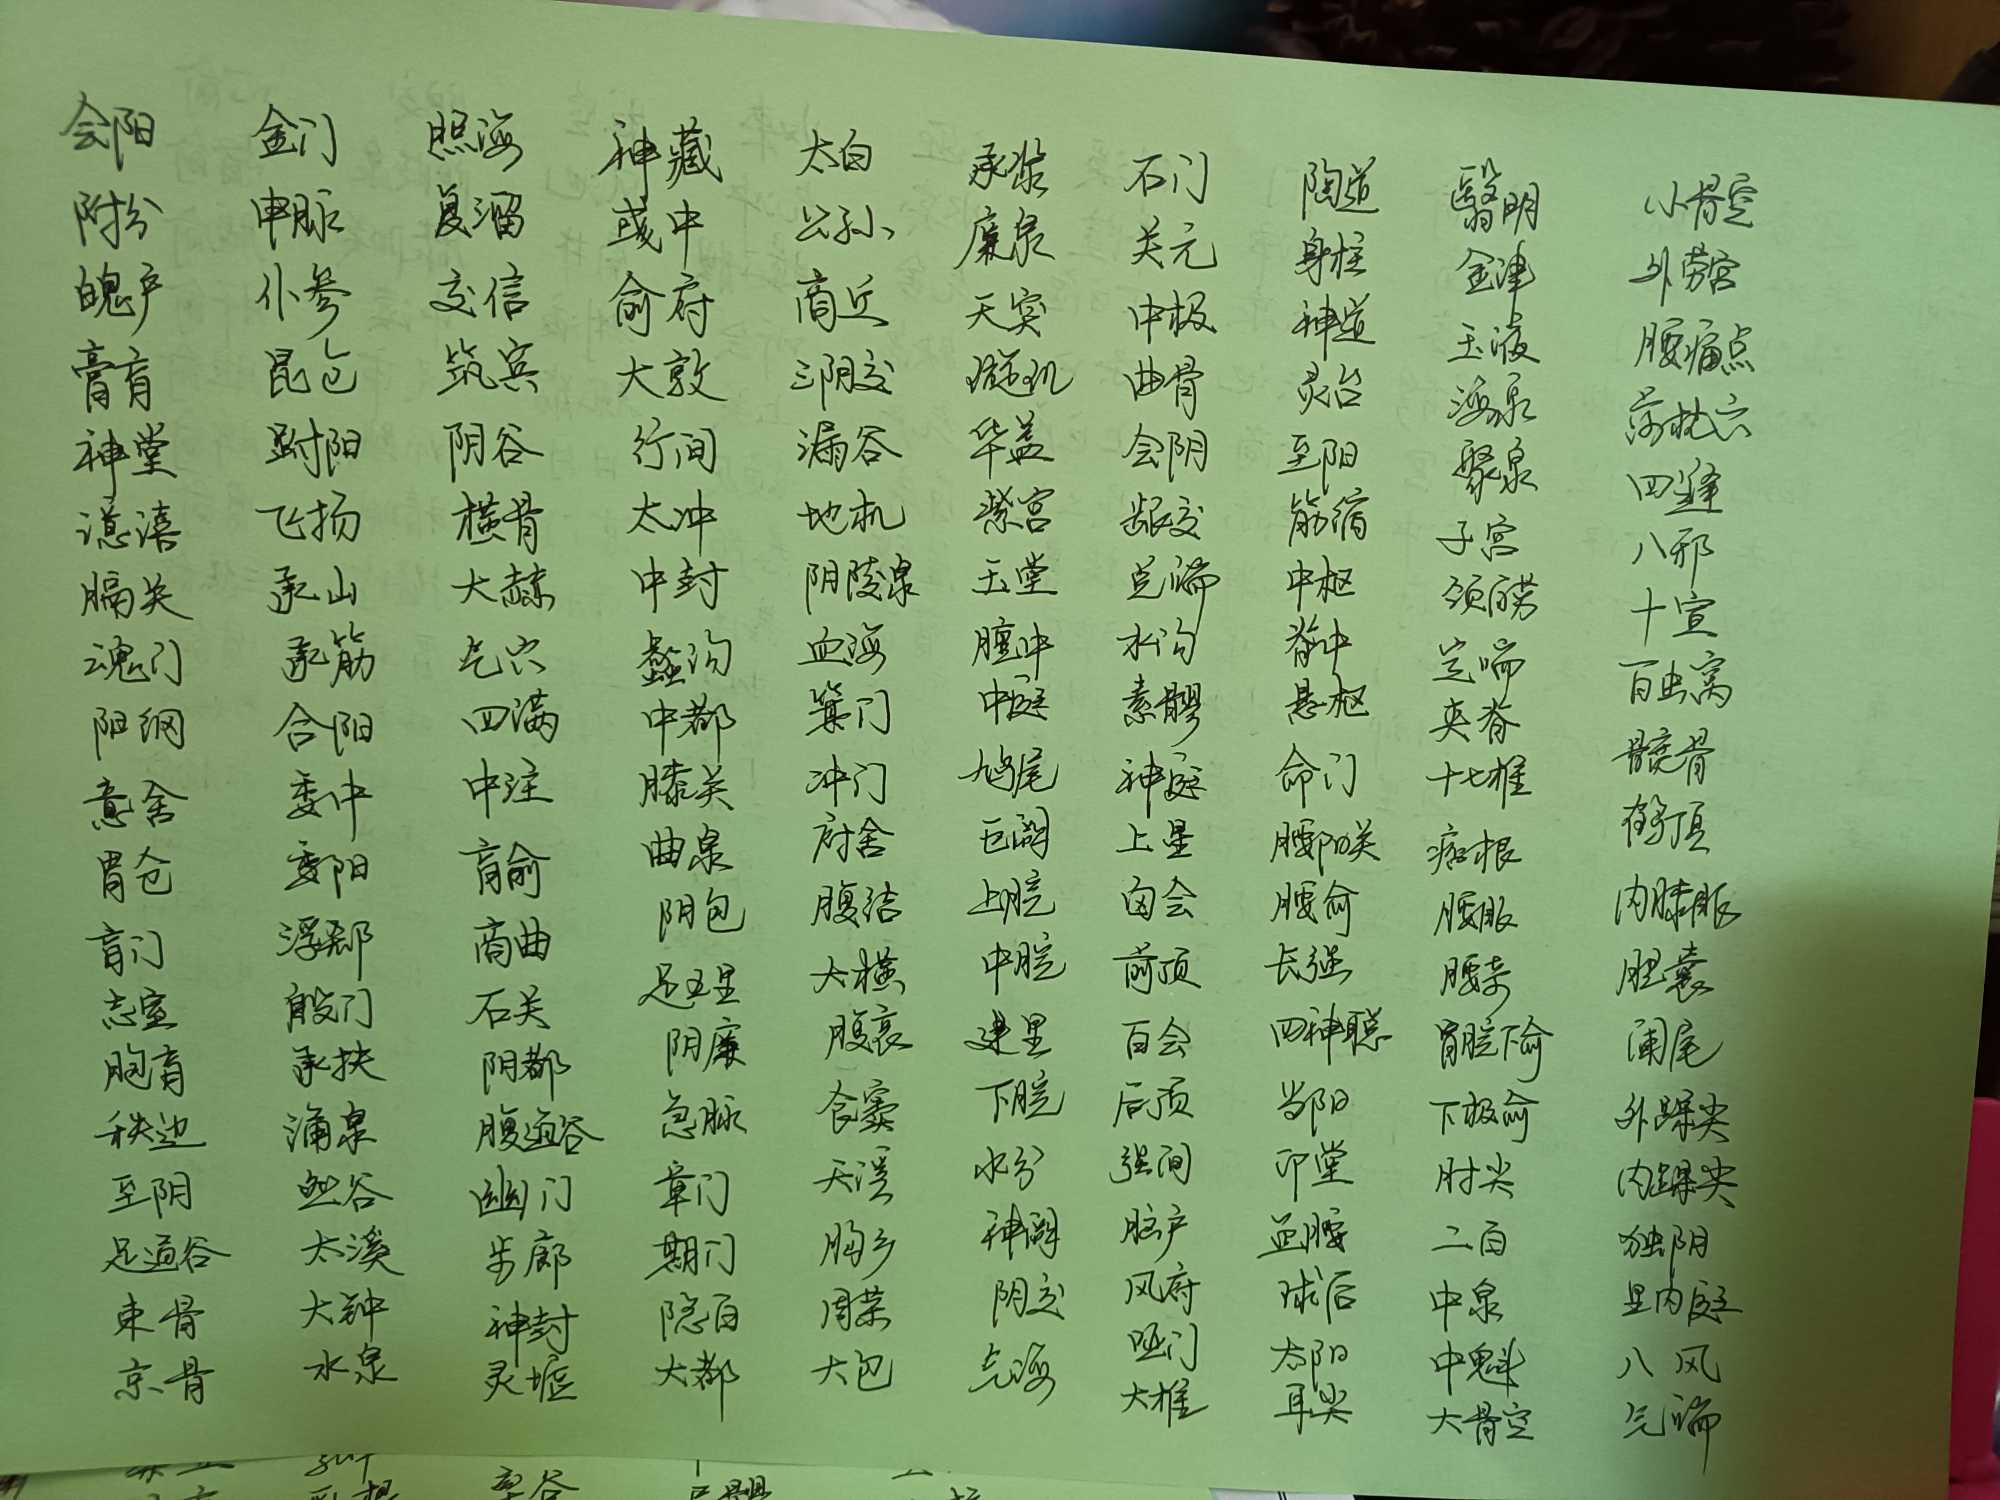 会阳
附分
魄户
膏肓
神堂
譩譆
膈关
魂门
阳纲
意舍
胃仓
肓门
志室
胞肓
秩边
至阴
足通谷
束骨
京骨
金门
申脉
仆参
昆仑
跗阳
飞扬
承山
承筋
合阳
委中
委阳
浮郄
殷门
承扶
涌泉
然谷
太溪
大钟
水泉
照海
复溜
交信
筑宾
阴谷
横骨
大赫
气穴
四满
中注
肓俞
商曲
石关
阴都
腹通谷
幽门
步廊
神封
灵墟
神藏
彧中
俞府
大敦
行间
太冲
中封
蠡沟
中都
膝关
曲泉
阴包
足五里
阴廉
急脉
章门
期门
隐白
大都
太白
公孙
商丘
三阴交
漏谷
地机
阴陵泉
血海
箕门
冲门
府舍
腹结
大横
腹哀
食窦
天溪
胸乡
周荣
大包
承浆
廉泉
天突
璇玑
华盖
紫宫
玉堂
膻中
中庭
鸠尾
巨阙
上脘
中脘
建里
下脘
水分
神阙
阴交
气海
石门
关元
中极
曲骨
会阴
龈交
兑端
水沟
素髎
神庭
上星
囟会
前顶
百会
后顶
强间
脑户
风府
哑门
大椎
陶道
身柱
神道
灵台
至阳
筋缩
中枢
脊中
悬枢
命门
腰阳关
腰俞
长强
四神聪
当阳
印堂
鱼腰
球后
太阳
耳尖
翳明
金津
玉液
海泉
聚泉
子宫
颈百劳
定喘
夹脊
十七椎
痞根
腰眼
腰奇
胃脘下俞
下极俞
肘尖
二白
中泉
中魁
大骨空
小骨空
外劳宫
腰痛点
落枕穴
四缝
八邪
十宣
百虫窝
髋骨
鹤顶
内膝眼
胆囊
阑尾
外踝尖
内踝尖
独阴
里内庭
八风
气端